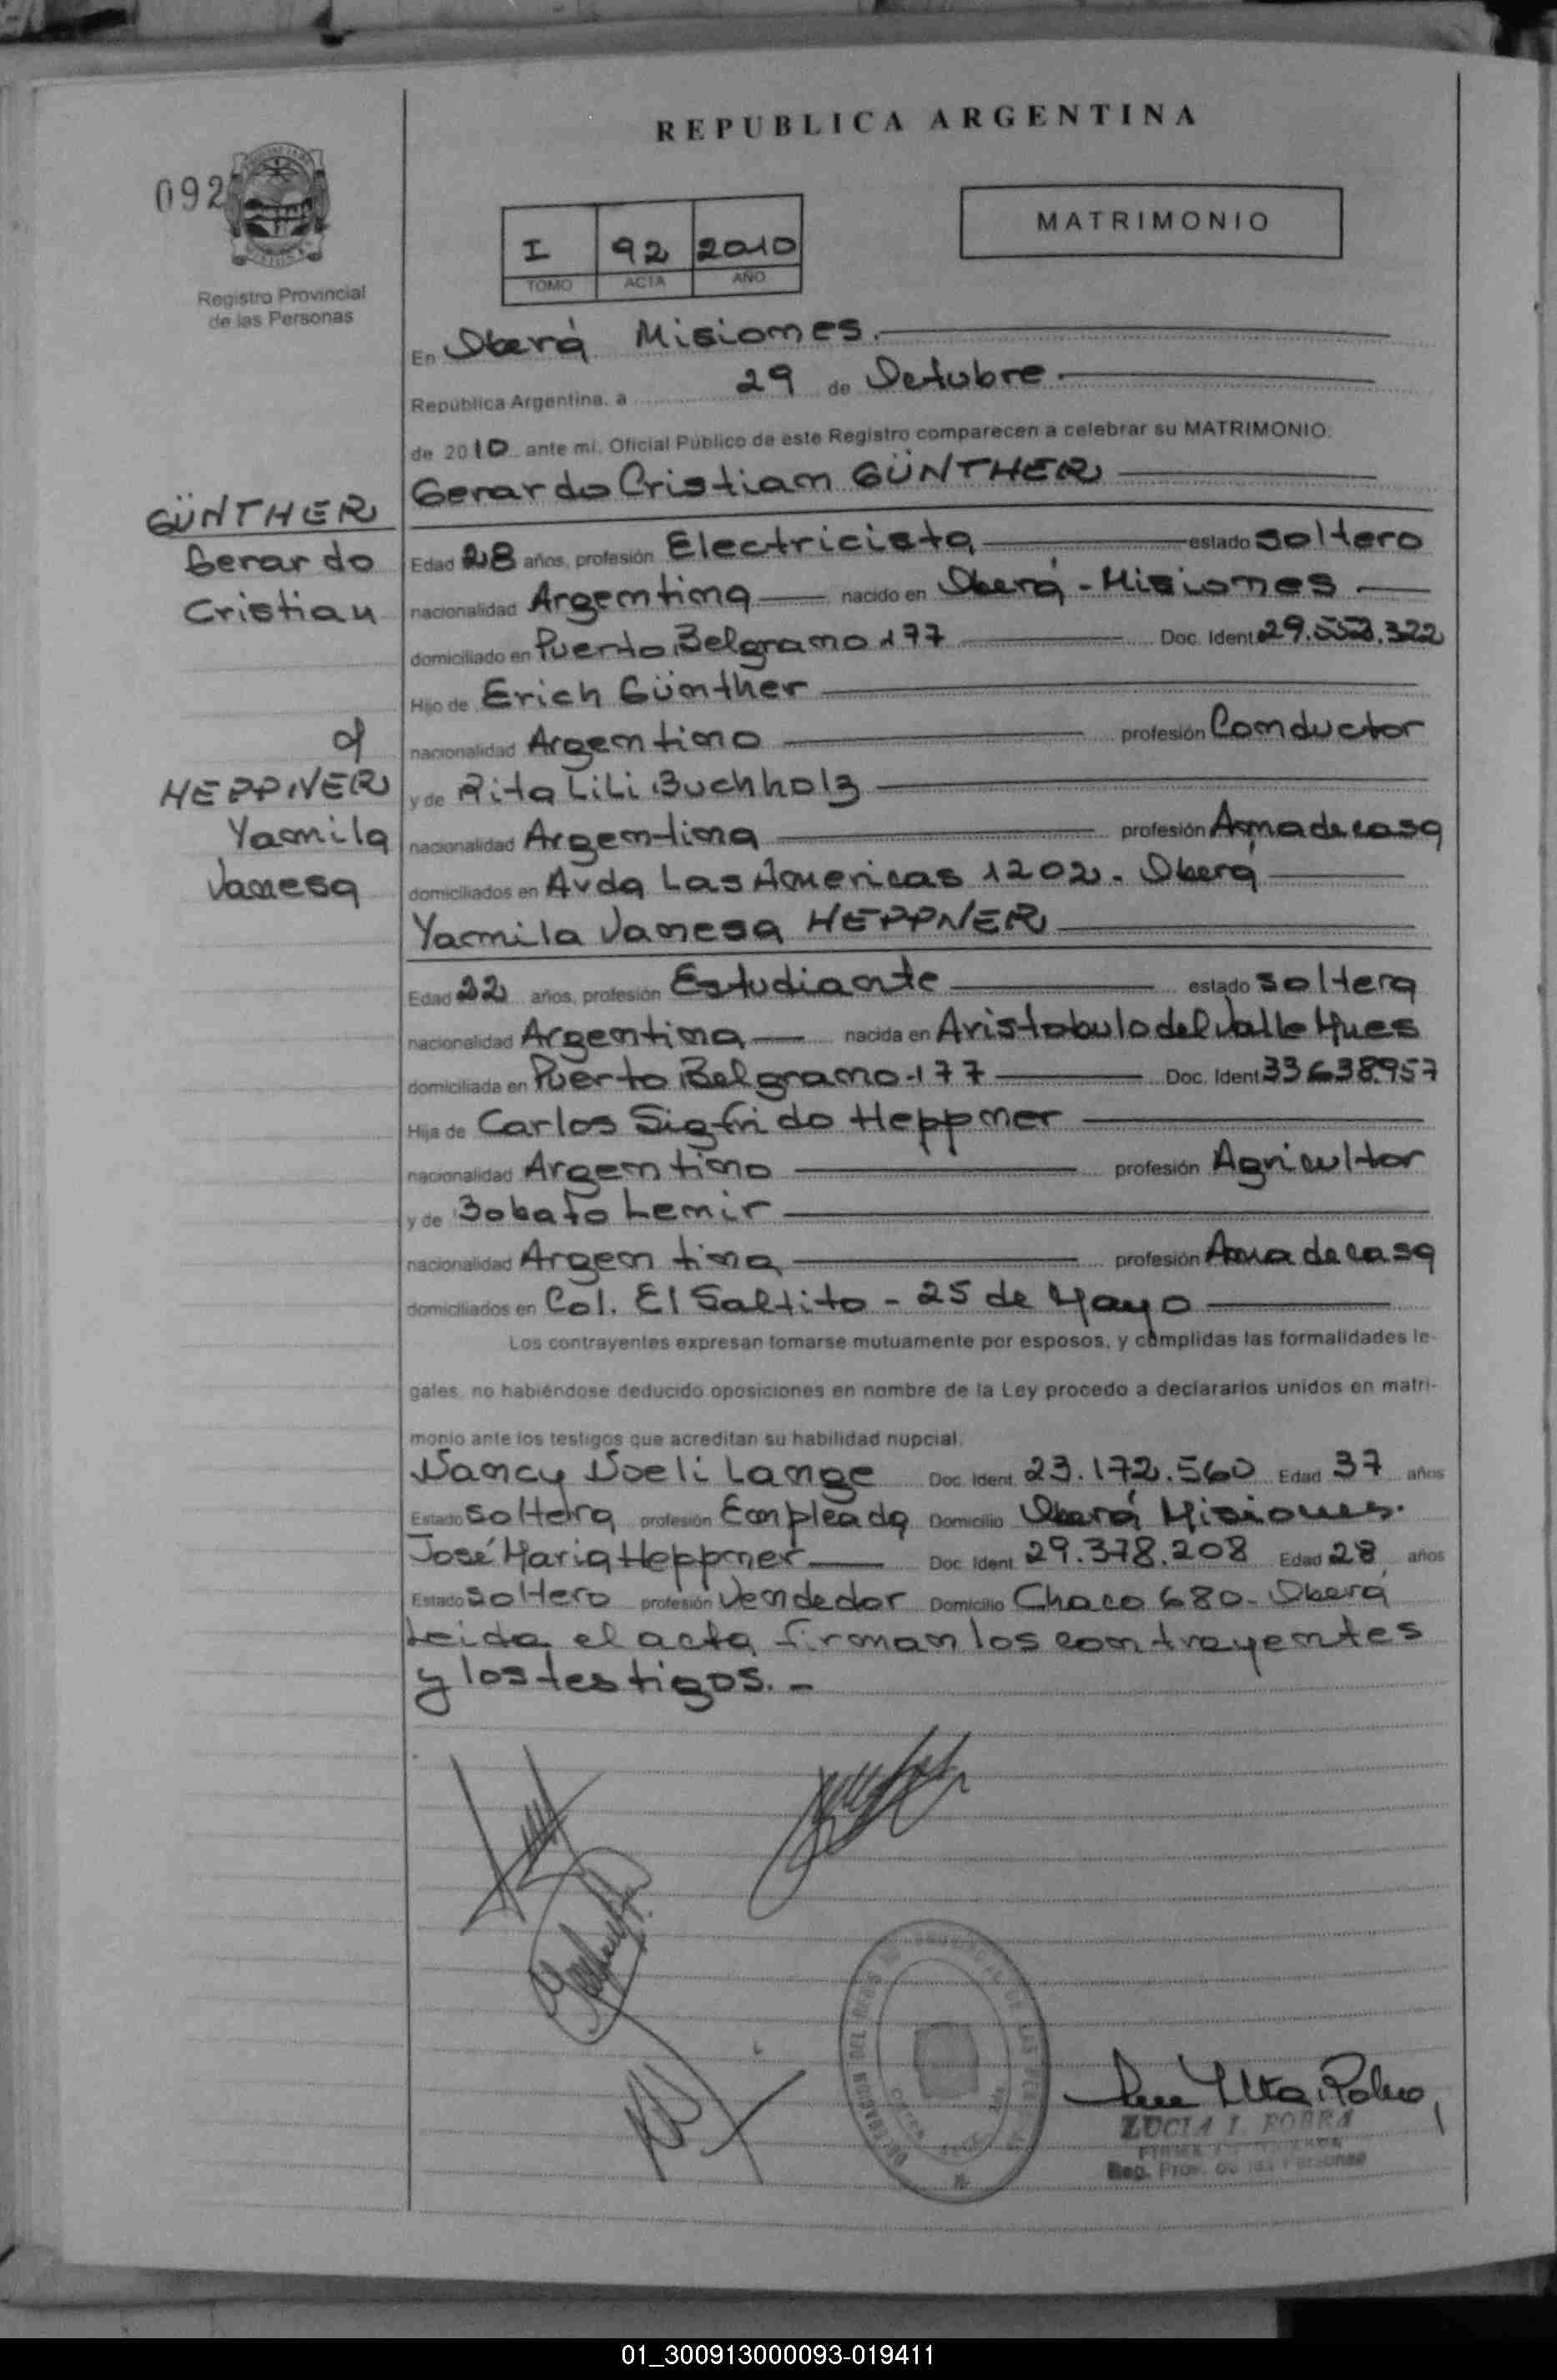 REPUBLICA ARGENTINA
092
MATRIMONIO
I 92 2010
TOMO ACTA AÑO
Registro Provincial
de las Personas
En Oberá Misiones.
República Argentina, a 29 de Octubre
de 2010 ante mí, Oficial Público de este Registro comparecen a celebrar su MATRIMONIO:
Gerardo Cristian GÜNTHER
GÜNTHER
Gerardo
Cristian
Edad 28 años, profesión Electricista estado soltero
nacionalidad Argentina nacido en Oberá - Misiones
domiciliado en Puerto Belgrano 177 Doc. Ident 29.558.322
Hijo de Erich Günther
nacionalidad Argentino profesión Conductor
y de Rita LiLi Buchholz
nacionalidad Argentina profesión Ama de casa
domiciliados en Avda Las Americas 1202. Oberá
HEPPNER
Yamila
Vanesa
Yamila Vanesa HEPPNER
Edad 22 años, profesión Estudiante estado soltera
nacionalidad Argentina nacida en Aristobulo del Valle Mnes
domiciliada en Puerto Belgrano 177 Doc. Ident 33638957
Hija de Carlos Sigfrido Heppner
nacionalidad Argentino profesión Agricultor
y de Lemir
nacionalidad Argentina profesión Ama de casa
domiciliados en Col. El Saltito - 25 de Mayo
Los contrayentes expresan tomarse mutuamente por esposos, y cumplidas las formalidades le-
gales, no habiéndose deducido oposiciones en nombre de la Ley procedo a declararlos unidos en matri-
monio ante los testigos que acreditan su habilidad nupcial.
Nancy Noeli Lange Doc. Ident. 23.172.560 Edad 37 años
Estado soltera profesión Empleada Domicilio Oberá Misiones.
José Maria Heppner Doc. Ident. 29.378.208 Edad 28 años
Estado soltero profesión Vendedor Domicilio Chaco 680 - Oberá
Leida el acta firman los contrayentes
y los testigos. -
LUCIA I.
Reg. Prov. de las Personas
01_300913000093-019411